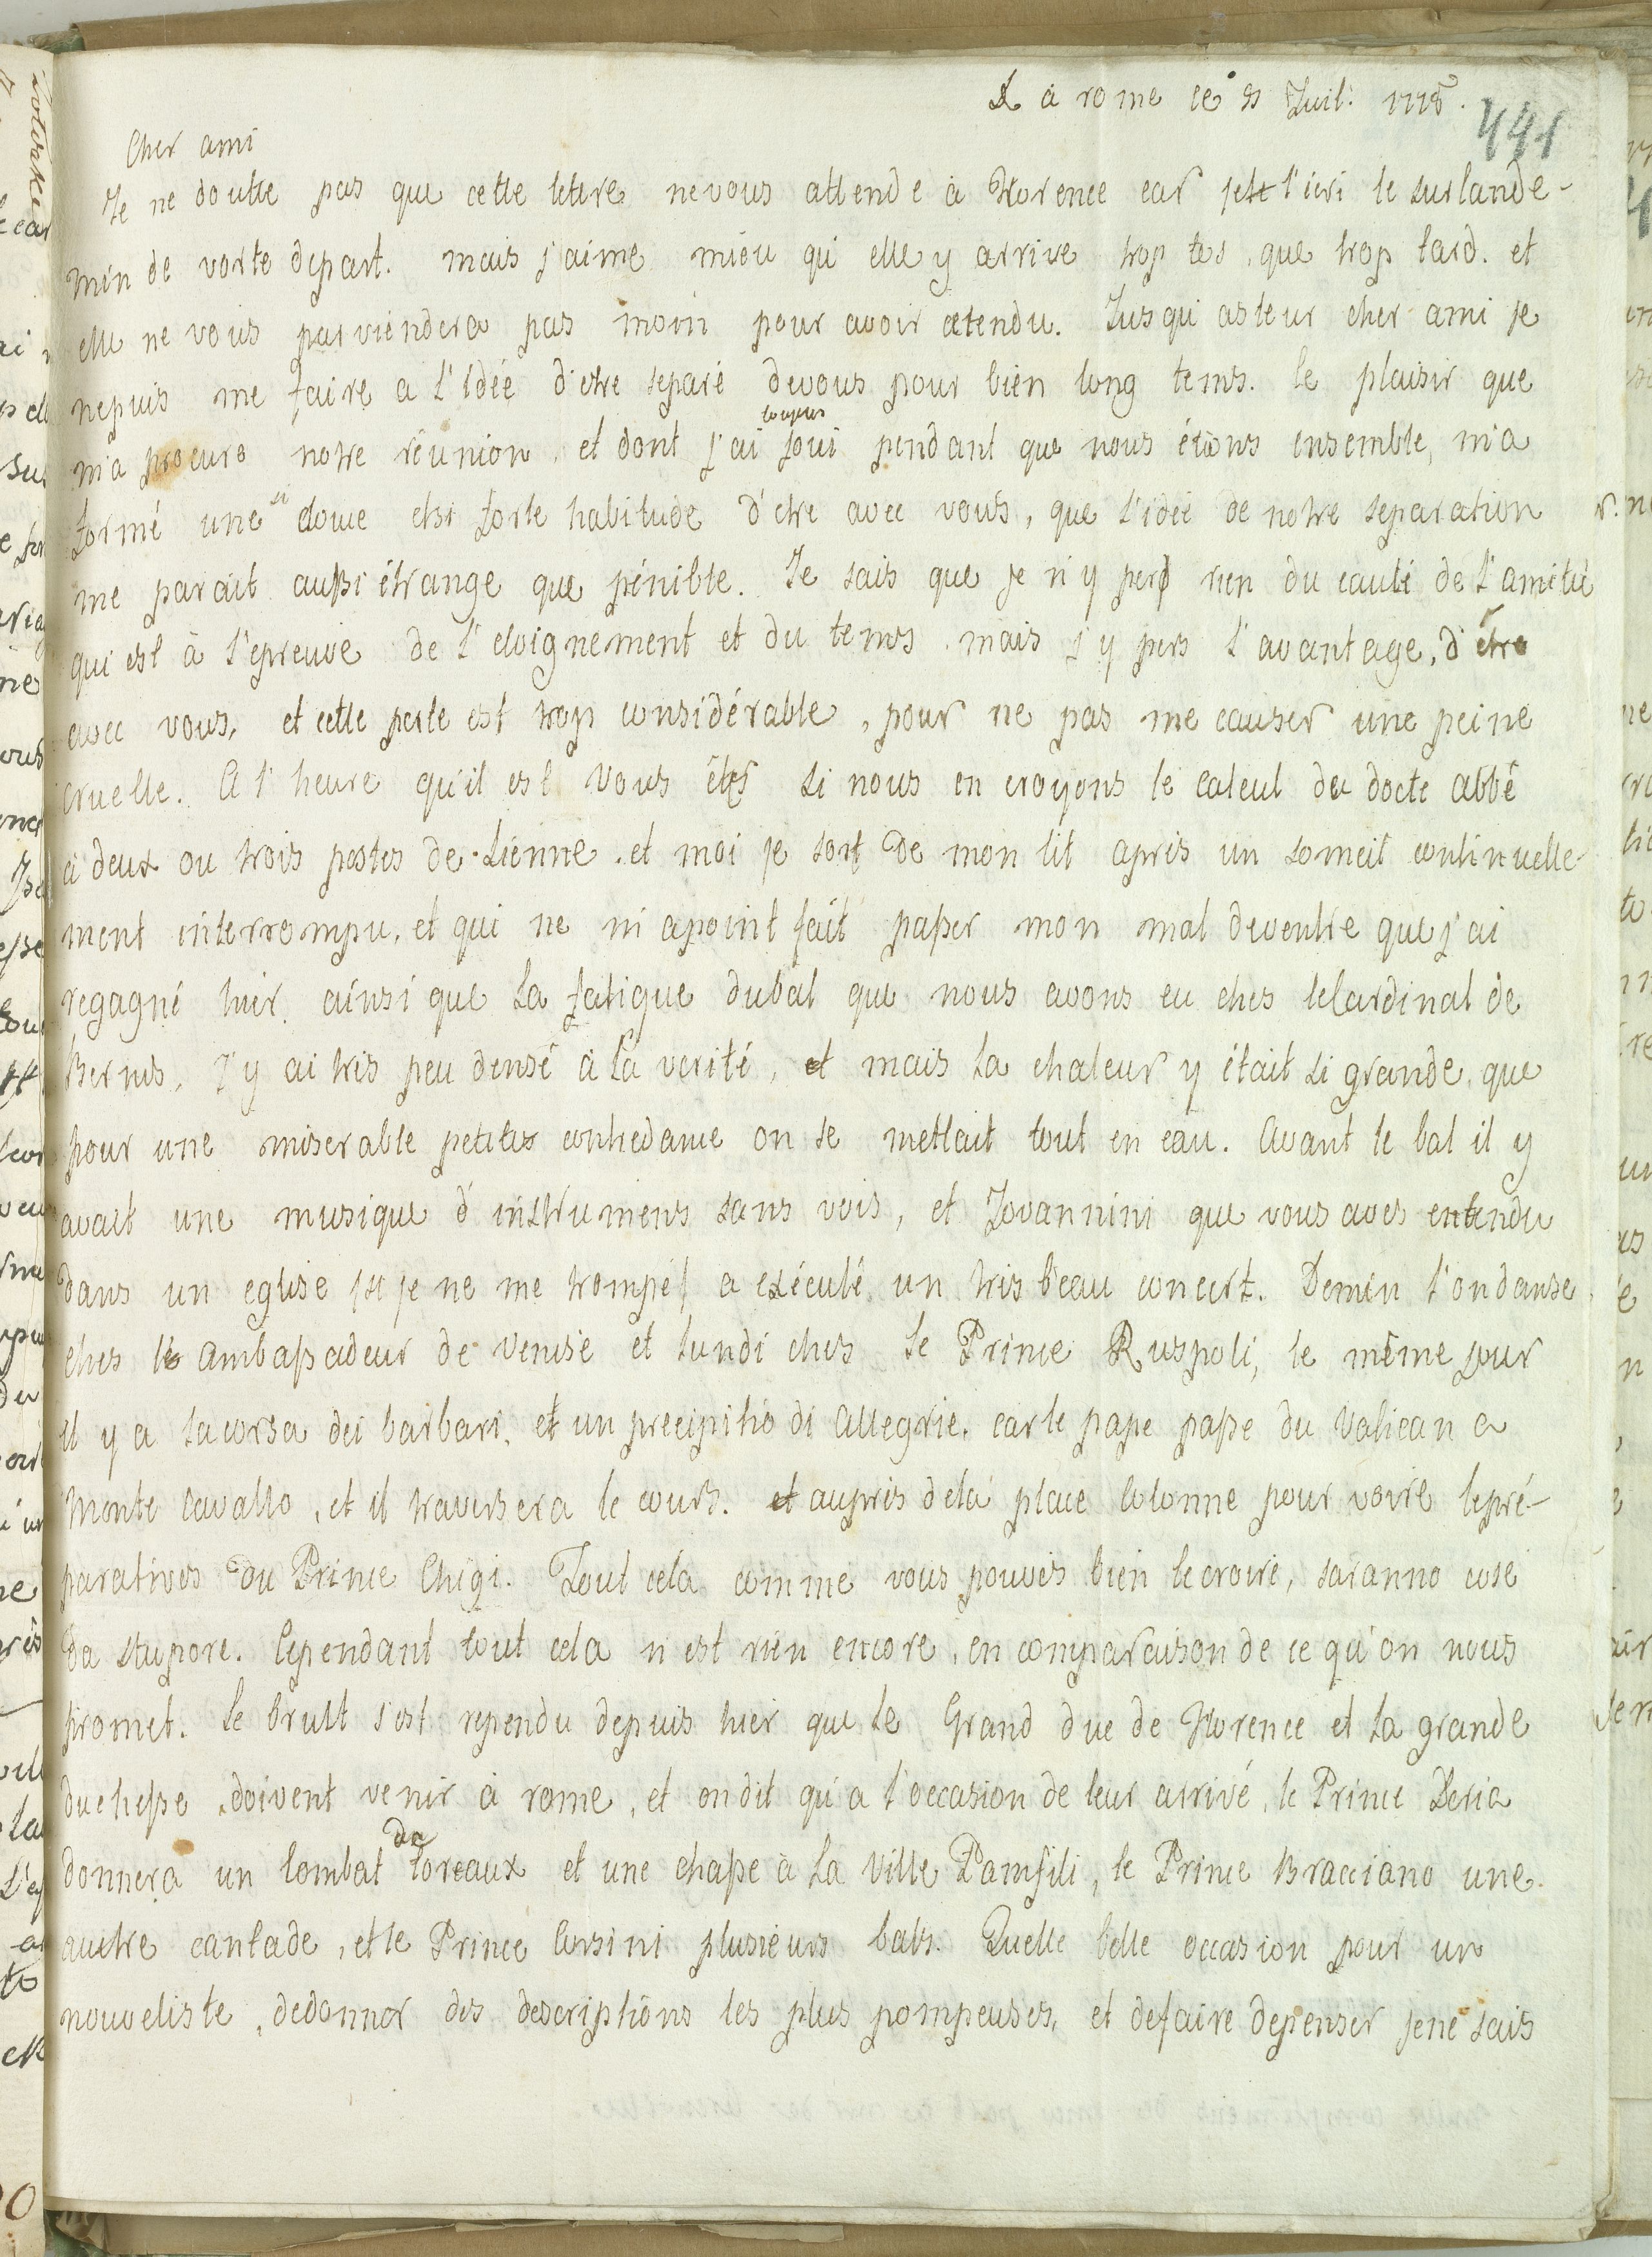 à rome ce Juil: 1778.
441
Cher ami
Je ne doutte pas que cette lettre ne vous attende à Florence car je l'icri le surlande-
min de vorte depart. mais j'aime mieu qu'elle y arrive trop tos, que trop tard. et
elle ne vous parviendera pas moin pour avoir atendu. Jusqu'asteur cher ami je
nepuis me faire a l'idée d'etre separé devous pour bien long tems. le plaisir que
m'a procuré notre réunion, et dont j'ai toujours joui pendant que nous étions ensemble, m'a
formé une si douce etsi forte habitude d'etre avec vous, que l'idée de notre separation
me parait aussi étrange que pénible. Je sais que je n'y perd rien du cauté de l'amitié
qui est à l'epreuve de l'eloignement et du tems. mais j'y pers l'avantage, d'être
avec vous, et cette perte est trop considérable, pour ne pas me causer une peine
cruelle. A l'heure qu'il est vous êtes si nous en croyons le calcul du docte abbé
à deux ou trois postes de Sienne. et moi je sort de mon lit apris un someil continuelle-
ment interrompu, et qui ne m'apoint fait passer mon mal deventre que j'ai
regagné hier, ainsi que la fatigue dubal que nous avons eu ches leCardinal de
Bernis, J'y ai tris peu densé à la verité, et mais la chaleur y était si grande, que
pour une miserable petite contredance on se mettait tout en eau. Avant le bal il y
avait une musique d'instrumens sans vois, et Jovannini que vous aves entendu
dans un eglise /si je ne me trompe/ a exécuté un tris beau concert. Demin l'ondanse
ches le ambassadeur de Venise et lundi ches le Prince Ruspoli, le même jour
il y a la corsa dei barbari, et un precipitio di allegrie, carle pape passe du Vatican a
Monte Cavallo, et il traversera le cours. et aupris dela place Colonne pour voire lepré-
paratives du Prince Chigi. Tout cela comme vous pouvés bien lecroire, saranno cose
da stupore. Cependant tout cela n'est rien encore, en comparaison de ce qu'on nous
promet. Le bruit s'est rependu depuis hier que le Grand duc de Florence et la grande
duchesse, doivent venir à rome, et ondit qu'a l'occasion de leur arrivé, le Prince Doria
donnera un Combat de toreaux et une chasse à la Ville Pamfili, le Prince Bracciano une
autre cantade, et le Prince Corsini plusieurs bals. Quelle belle occasion pour un
nouveliste, dedonner des descriptions les plus pompeuses, et defaire depenser jene sais